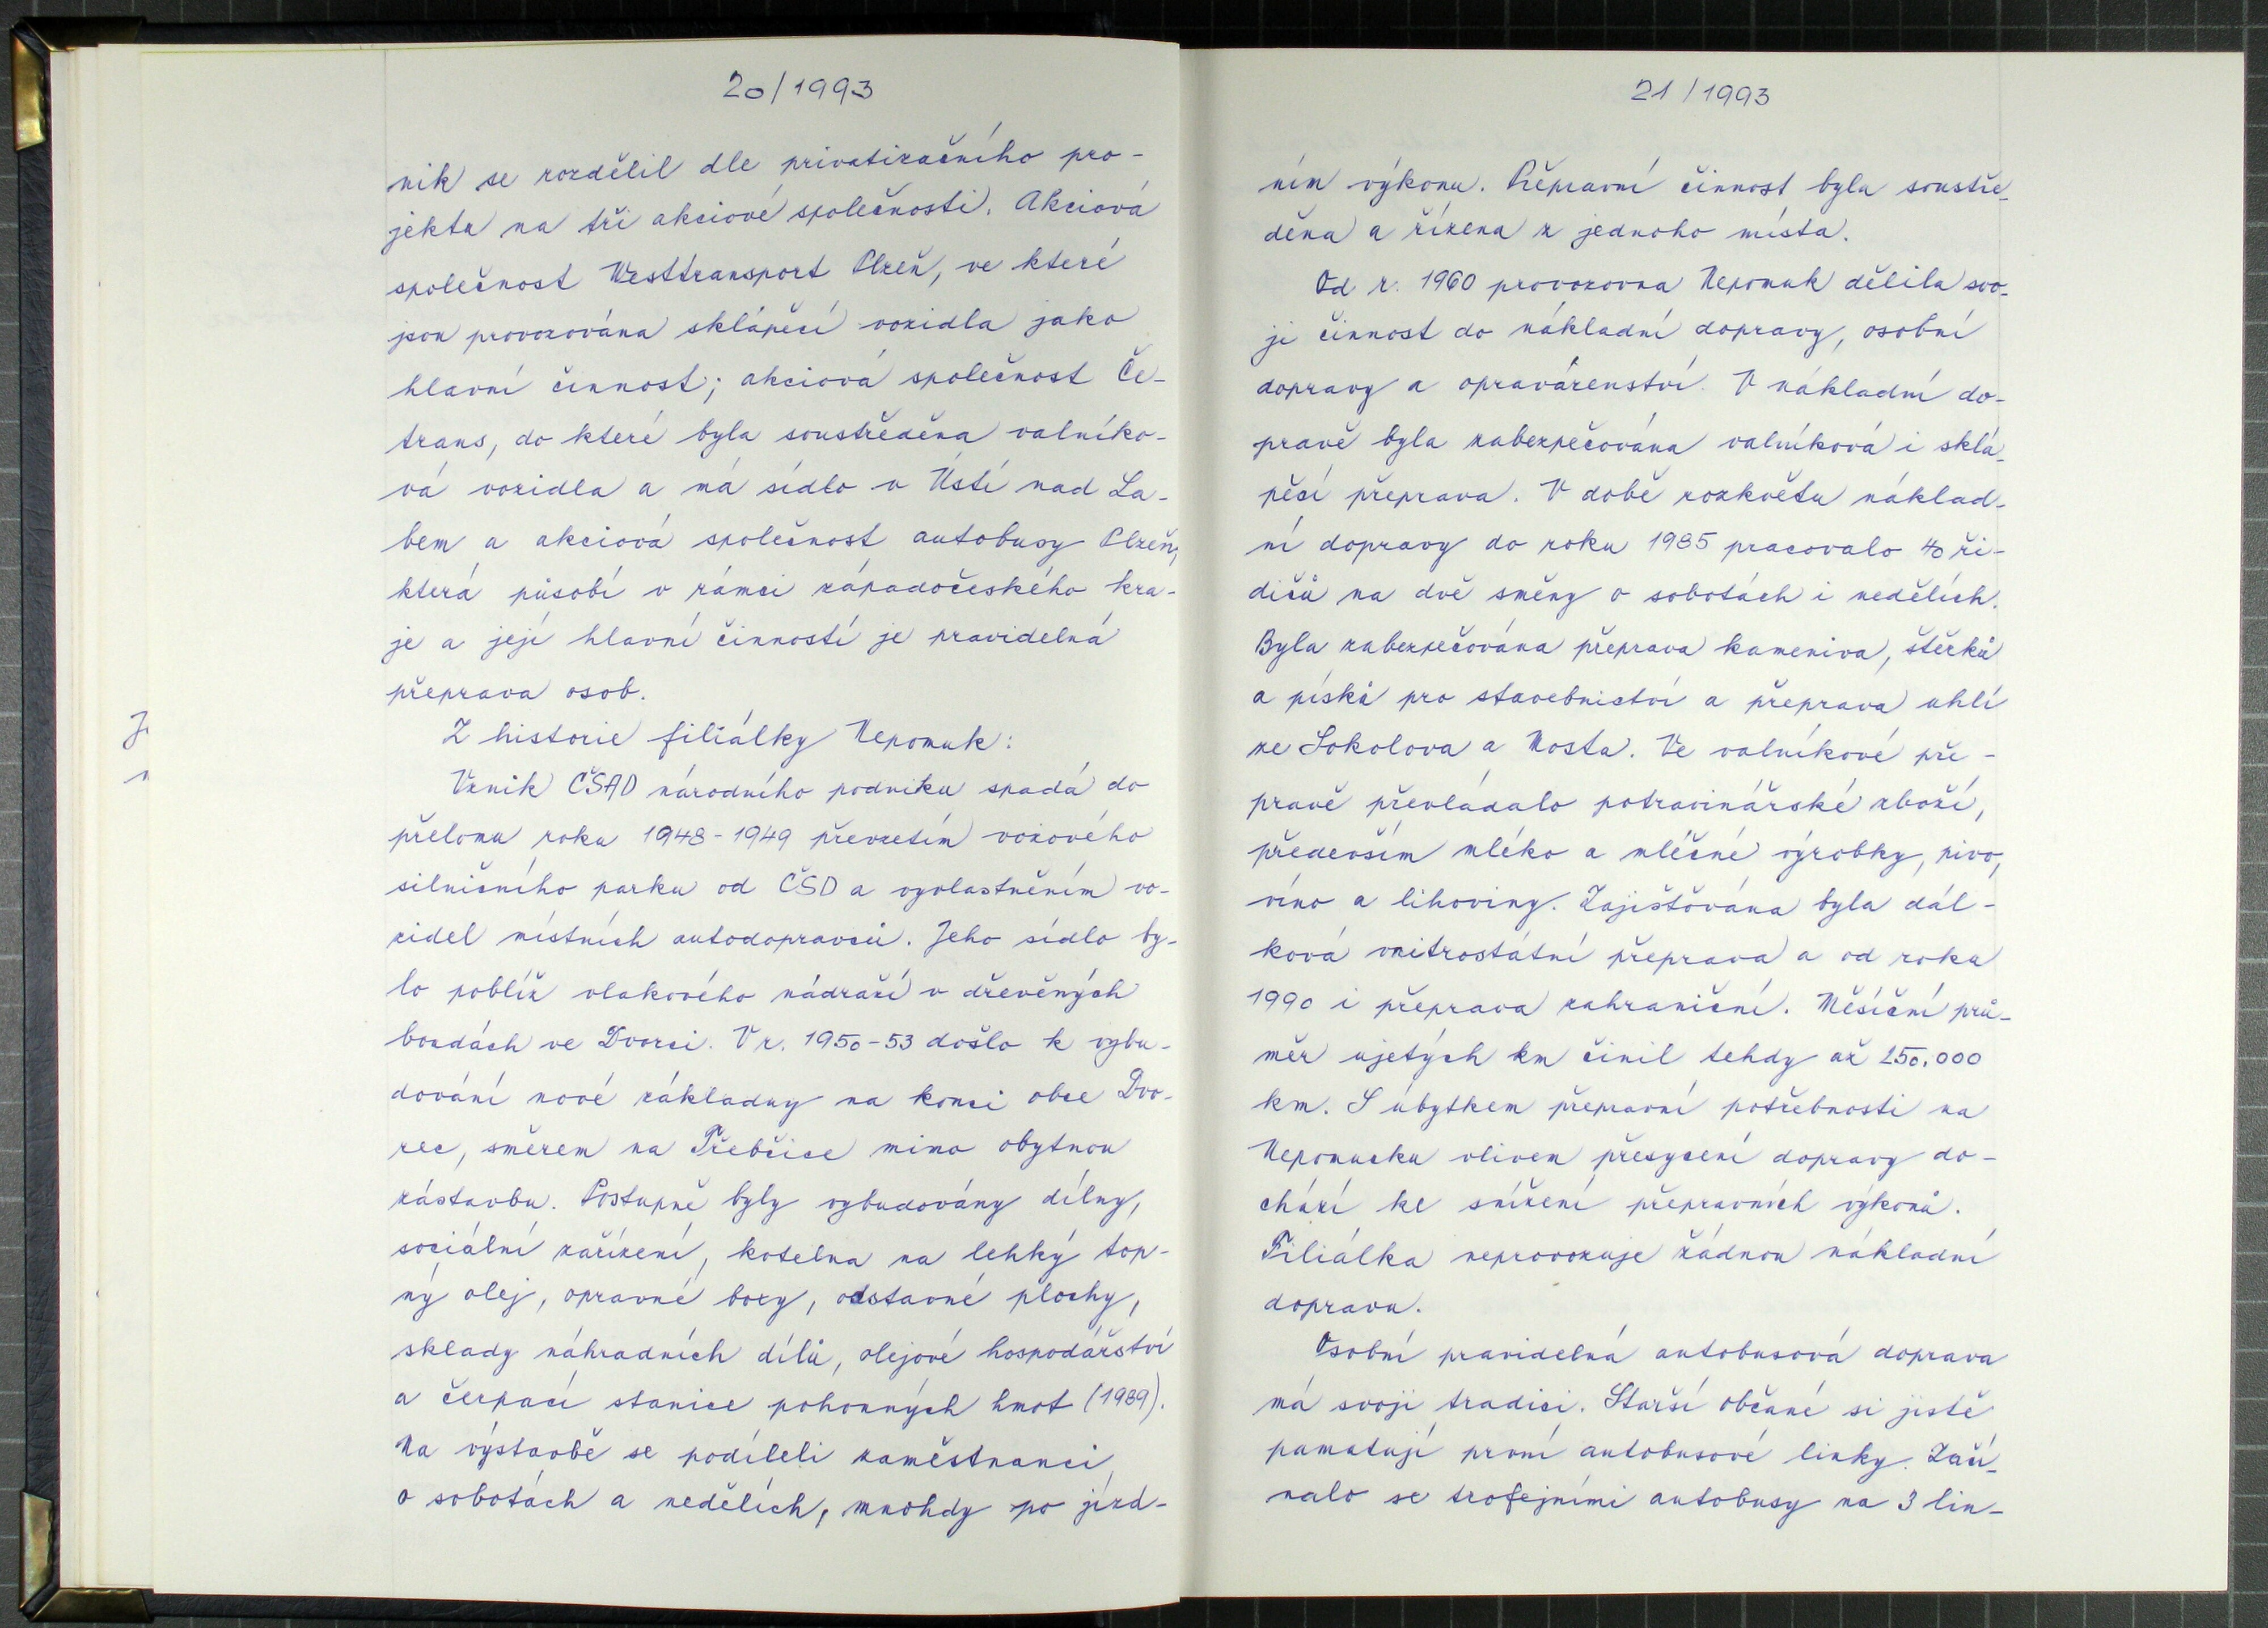 20/1993
nik se rozdělil dle privatizačního pro-
jektu na tři akciové společnosti. Akciová
společnost Westtransport Plzeň, ve které
jsou provozována sklápěcí vozidla jako
hlavní činnost; akciová společnost Če-
trans, do které byla soustředěna valníko-
vá vozidla a má sídlo v Ústí nad La-
bem a akciová společnost autobusy Plzeň,
která působí v rámci západočeského kra-
je a její hlavní činností je pravidelná
přeprava osob.
Z historie filiálky Nepomuk:
Vznik ČSAD národního podniku spadá do
přelomu roku 1948-1949 převzetím vozového
silničního parku od ČSD a vyvlastněním vo-
zidel místních autodopravců. Jeho sídlo by-
lo poblíž vlakového nádraží v dřevěných
boudách ve Dvorci. V r. 1950-53 došlo k vybu-
dování nové základny na konci obce Dvo-
rec, směrem na Třebčice mimo obytnou
zástavbu. Postupně byly vybudovány dílny,
sociální zařízení, kotelna na lehký top-
ný olej, opravné boxy, odstavné plochy,
sklady náhradních dílů, olejové hospodářství
a čerpací stanice pohonných hmot (1989).
Na výstavbě se podíleli zaměstnanci
o sobotách a nedělích, mnohdy po jízd-
21/1993
ním výkonu. Přepravní činnost byla soustře-
děna a řízena z jednoho místa.
Od r. 1960 provozovna Nepomuk dělila svo-
ji činnost do nákladní dopravy, osobní
dopravy a opravárenství. V nákladní do-
pravě byla zabezpečována valníková i sklá-
pěcí přeprava. V době rozkvětu náklad-
ní dopravy do roku 1985 pracovalo 40 ři-
dičů na dvě směny o sobotách i nedělích.
Byla zabezpečována přeprava kameniva, štěrků
a písků pro stavebnictví a přeprava uhlí
ze Sokolova a Mosta. Ve valníkové pře-
pravě převládalo potravinářské zboží,
především mléko a mléčné výrobky, pivo,
víno a lihoviny. Zajišťována byla dál-
ková vnitrostátní přeprava a od roku
1990 i přeprava zahraniční. Měsíční prů-
měr ujetých km činil tehdy až 250.000
km. S úbytkem přepravní potřebnosti na
Nepomucku vlivem přesycení dopravy do-
chází ke snížení přepravních výkonů.
Filiálka neprovozuje žádnou nákladní
dopravu.
Osobní pravidelná autobusová doprava
má svoji tradici. Starší občané si jistě
pamatují první autobusové linky. Začí-
nalo se trofejními autobusy na 3 lin-